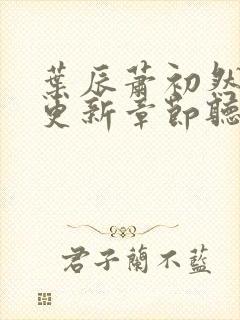 葉辰蕭初然
更新章節聽
君子蘭不藍